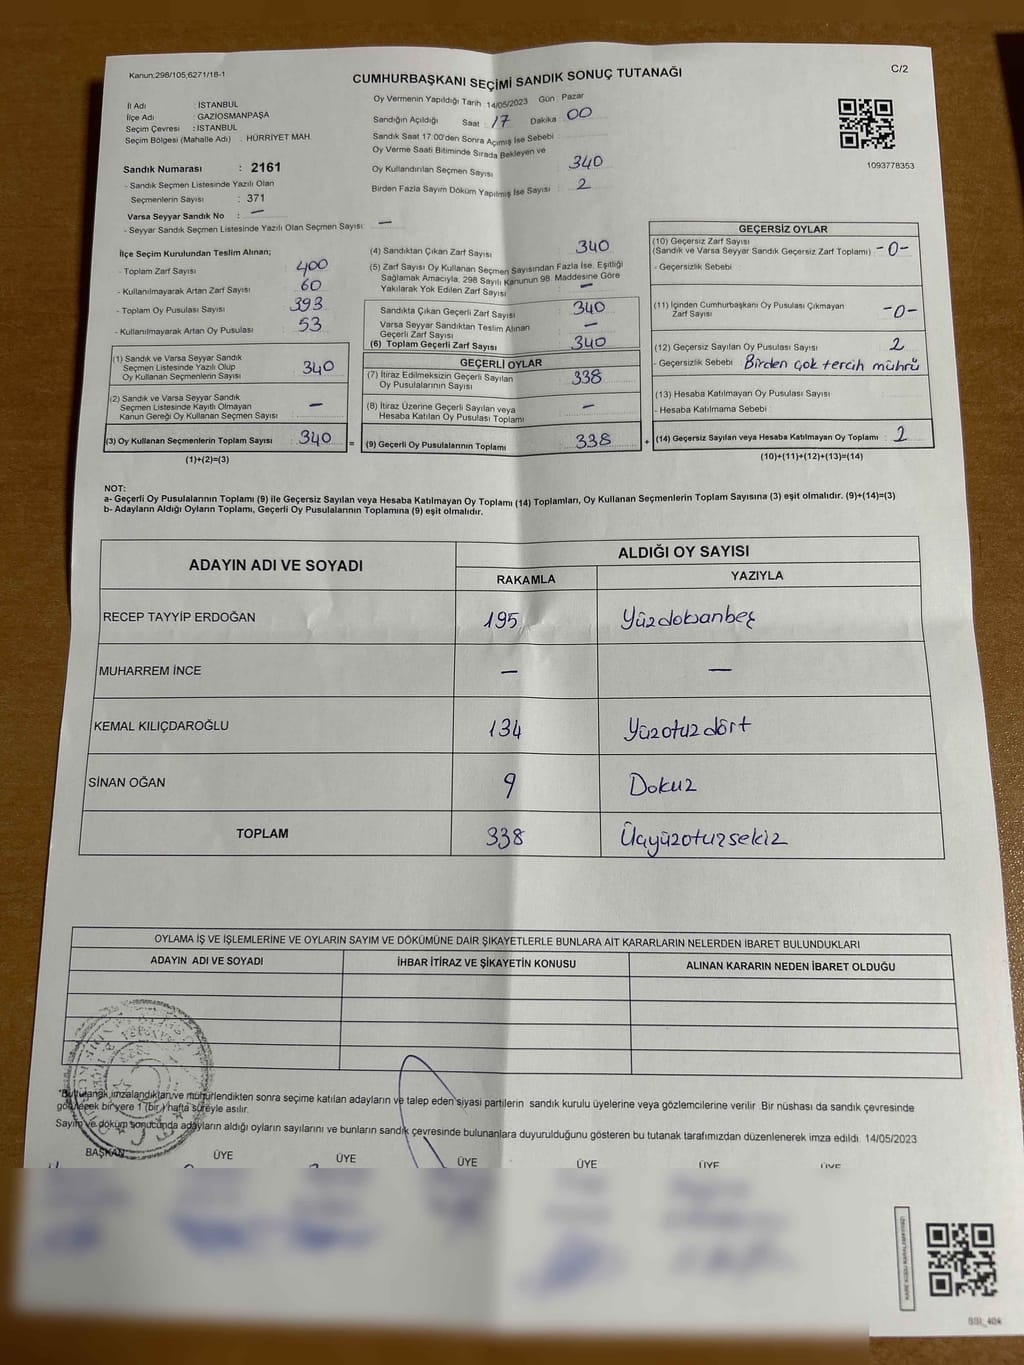 Kanun;298/105,6271/18-1
CUMHURBAŞKANI SEÇİMİ SANDIK SONUÇ TUTANAĞI
C/2
İl Adı : İSTANBUL
İlçe Adı : GAZİOSMANPAŞA
Seçim Çevresi : İSTANBUL
Seçim Bölgesi (Mahalle Adı) . HÜRRİYET MAH.
Sandık Numarası : 2161
- Sandık Seçmen Listesinde Yazılı Olan
Seçmenlerin Sayısı : 371
Varsa Seyyar Sandık No : —
- Seyyar Sandık Seçmen Listesinde Yazılı Olan Seçmen Sayısı: —
Oy Vermenin Yapıldığı Tarih 14/05/2023 Gün : Pazar
Sandığın Açıldığı Saat : 17 Dakika : 00
Sandık Saat 17:00'den Sonra Açımış İse Sebebi :
Oy Verme Saati Bitiminde Sırada Bekleyen ve
Oy Kullandırılan Seçmen Sayısı : 340
Birden Fazla Sayım Döküm Yapılmış İse Sayısı : 2
1093778353
İlçe Seçim Kurulundan Teslim Alınan;
- Toplam Zarf Sayısı : 400
- Kullanılmayarak Artan Zarf Sayısı : 60
- Toplam Oy Pusulası Sayısı : 393
- Kullanılmayarak Artan Oy Pusulası : 53
(1) Sandık ve Varsa Seyyar Sandık
Seçmen Listesinde Yazılı Olup
Oy Kullanan Seçmenlerin Sayısı : 340
(2) Sandık ve Varsa Seyyar Sandık
Seçmen Listesinde Kayıtlı Olmayan
Kanun Gereği Oy Kullanan Seçmen Sayısı : —
(3) Oy Kullanan Seçmenlerin Toplam Sayısı : 340 =
(1)+(2)=(3)
(4) Sandıktan Çıkan Zarf Sayısı : 340
(5) Zarf Sayısı Oy Kullanan Seçmen Sayısından Fazla İse, Eşitliği
Sağlamak Amacıyla, 298 Sayılı Kanunun 98. Maddesine Göre
Yakılarak Yok Edilen Zarf Sayısı : —
Sandıkta Çıkan Geçerli Zarf Sayısı : 340
Varsa Seyyar Sandıktan Teslim Alınan
Geçerli Zarf Sayısı : —
(6) Toplam Geçerli Zarf Sayısı : 340
GEÇERLİ OYLAR
(7) İtiraz Edilmeksizin Geçerli Sayılan
Oy Pusulalarının Sayısı : 338
(8) İtiraz Üzerine Geçerli Sayılan veya
Hesaba Katılan Oy Pusulası Toplamı : —
(9) Geçerli Oy Pusulalarının Toplamı : 338 +
GEÇERSİZ OYLAR
(10) Geçersiz Zarf Sayısı
(Sandık ve Varsa Seyyar Sandık Geçersiz Zarf Toplamı) : -0-
- Geçersizlik Sebebi
(11) İçinden Cumhurbaşkanı Oy Pusulası Çıkmayan
Zarf Sayısı : -0-
(12) Geçersiz Sayılan Oy Pusulası Sayısı : 2
- Geçersizlik Sebebi : Birden çok tercih mührü
(13) Hesaba Katılmayan Oy Pusulası Sayısı :
- Hesaba Katılmama Sebebi :
(14) Geçersiz Sayılan veya Hesaba Katılmayan Oy Toplamı : 2
(10)+(11)+(12)+(13)=(14)
NOT:
a- Geçerli Oy Pusulalarının Toplamı (9) ile Geçersiz Sayılan veya Hesaba Katılmayan Oy Toplamı (14) Toplamları, Oy Kullanan Seçmenlerin Toplam Sayısına (3) eşit olmalıdır. (9)+(14)=(3)
b- Adayların Aldığı Oyların Toplamı, Geçerli Oy Pusulalarının Toplamına (9) eşit olmalıdır.
ADAYIN ADI VE SOYADI
ALDIĞI OY SAYISI
RAKAMLA YAZIYLA
RECEP TAYYİP ERDOĞAN 195 Yüzdoksanbeş
MUHARREM İNCE — —
KEMAL KILIÇDAROĞLU 134 Yüzotuzdört
SİNAN OĞAN 9 Dokuz
TOPLAM 338 Üçyüzotuzsekiz
OYLAMA İŞ VE İŞLEMLERİNE VE OYLARIN SAYIM VE DÖKÜMÜNE DAİR ŞİKAYETLERLE BUNLARA AİT KARARLARIN NELERDEN İBARET BULUNDUKLARI
ADAYIN ADI VE SOYADI İHBAR İTİRAZ VE ŞİKAYETİN KONUSU ALINAN KARARIN NEDEN İBARET OLDUĞU
*Bu tutanak, imzalandıktan ve mühürlendikten sonra seçime katılan adayların ve talep eden siyasi partilerin sandık kurulu üyelerine veya gözlemcilerine verilir. Bir nüshası da sandık çevresinde
görülecek bir yere 1 (bir ) hafta süreyle asılır.
Sayım ve döküm sonucunda adayların aldığı oyların sayılarını ve bunların sandık çevresinde bulunanlara duyurulduğunu gösteren bu tutanak tarafımızdan düzenlenerek imza edildi. 14/05/2023
BAŞKAN ÜYE ÜYE ÜYE ÜYE ÜYE ÜYE